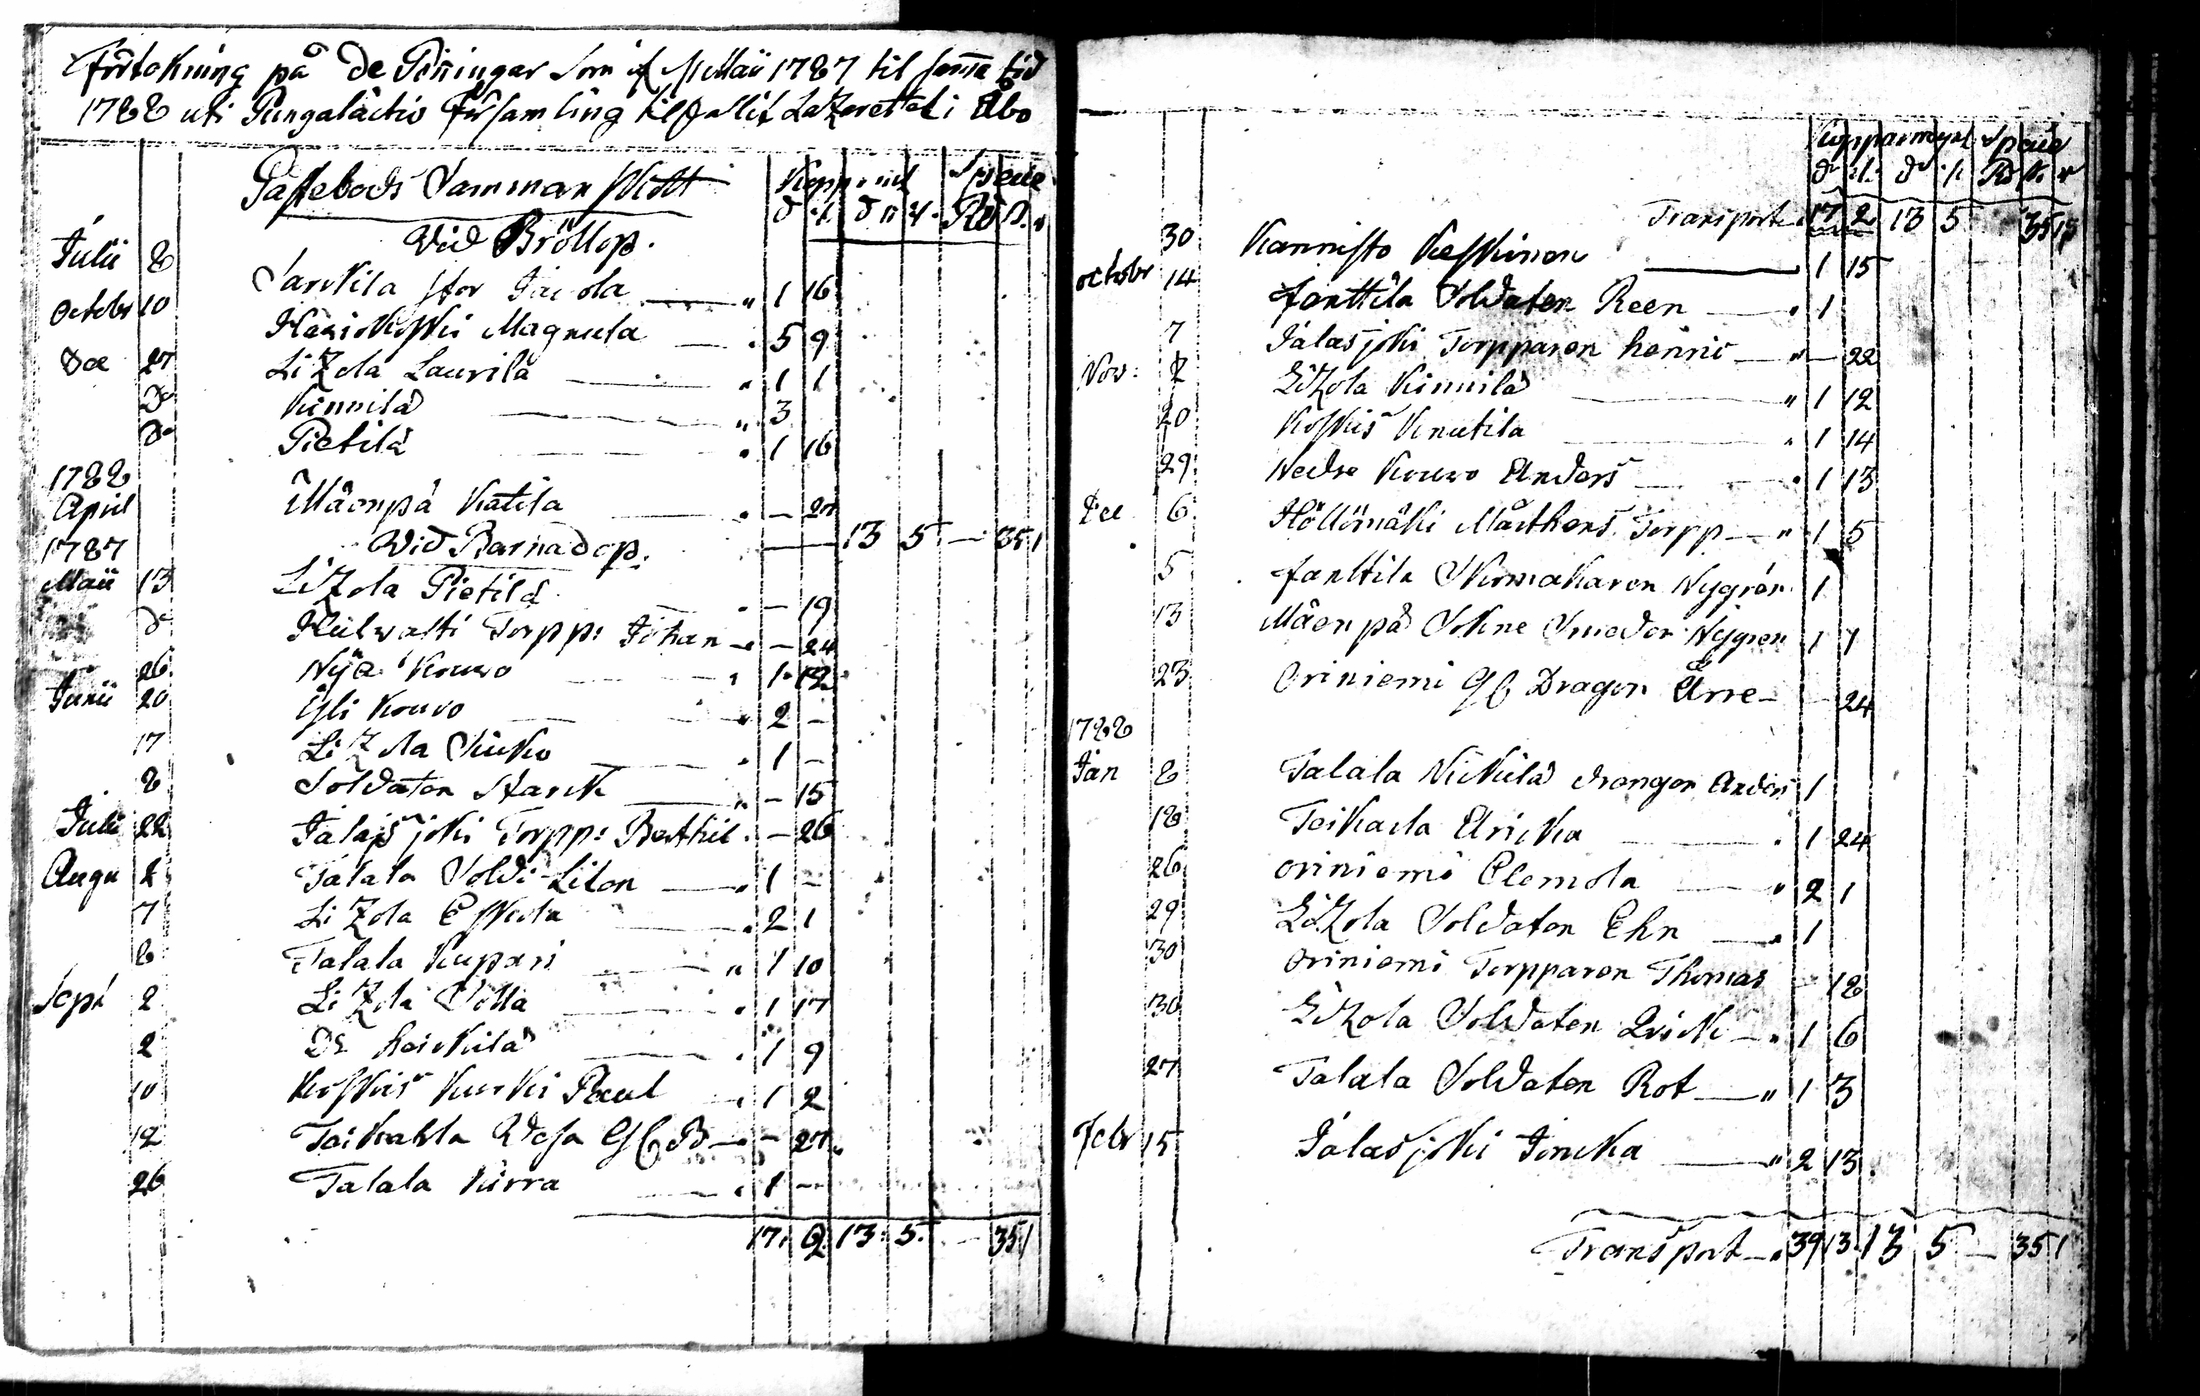 Förtekning på de Peningar som if 1 Maii 1787 til samma tid
1788 uti Pungalaitio Församling tilfallit Lazarettet i Åbo
Gästebods Sammanskott Kopp: mt Specie
d sl. d sl. Rd s.
Vid Bröllop.
Julii 8 Sarkila stor Jacola " 1 16
Octobr 10 Hariokoski Magnula " 5 9
Dec 27 Li Zola Laurila " 1 1
do Kinnilä " 3
do Pietilä " 1 16
1788
April Mäenpä Katila " — 27
Vid Barnadop. 13 5 — 35 1
1787
Maii 13 Li Zola Pietilä " — 19
do Hulwasti Torpp: Johan " — 24
26 Nya Kouvo " 1 12
Junii 20 Yli Kouvo " 2 —
17 Li Zola Kuko " 1 —
8 Soldaten Starck " — 15
Julii 22 Jalasjoki Torpp: Berthil " — 26
Augu 2 Talala Sold: Liton " 1 —
7 Li Zola Eskola " 2 1
8 Talala Kupari " 1 10
Sept 2 Li Zola Solla " 1 17
2 Do Heickilä " 1 9
10 Koskis Kurki Paul " 1 2
12 Toikkala Wesa G C B " — 27
26 Talala Kirra " 1 —
17 2 13 5 — 35 1
Kopparmynt Specie
d sl. d sl. Rd s. r
Transport 17 2 13 5 35 1
30 Kannisto Keskinen 1 15
octobr 14 Janttila Soldaten Reen " 1
7 Jalasjoki Torpparen henric " — 22
Nov: 2 Li Zola Kinnilä " 1 12
20 Koskis Knutila " 1 14
29 Nedre Kouvo Anders " 1 13
Dec 6 Höllömäki Mårthens Torpp " 1 5
5 Janttila Skomakaren Nygrén 1
13 Mäenpä Sokne Smeden Nygren 1 7
23 Oriniemi G C Dragon Urre — 24
1788
Jan 8 Talala Nickilä drengen Anders 1
18 Toikkala Ericka " 1 24
26 oriniemi Clemola " 2 1
29 Li Zola Soldaten Ehn " 1
30 oriniemi Torpparen Thomas — 18
30 Li Zola Soldaten Qvick " 1 6
27 Talala Soldaten Rot " 1 3
Febr 15 Jalasjoki Jäncka " 2 13
Transport " 39 13 13 5 — 35 1